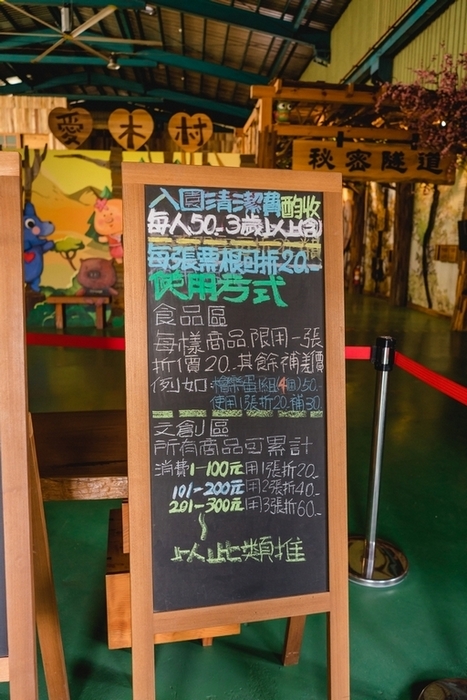 愛木村
秘密隧道
入園清潔費酌收
每人50.-3歲以上(含)
每張票根可折20.-
使用方式
食品區
每樣商品限用一張
折價20.其餘補差價
例如:檜木蛋1組(4個)50.-
使用1張折20.補30.
文創區
所有商品可累計
消費1-100元用1張折20.-
101-200元用2張折40.-
201-300元用3張折60.-
以此類推